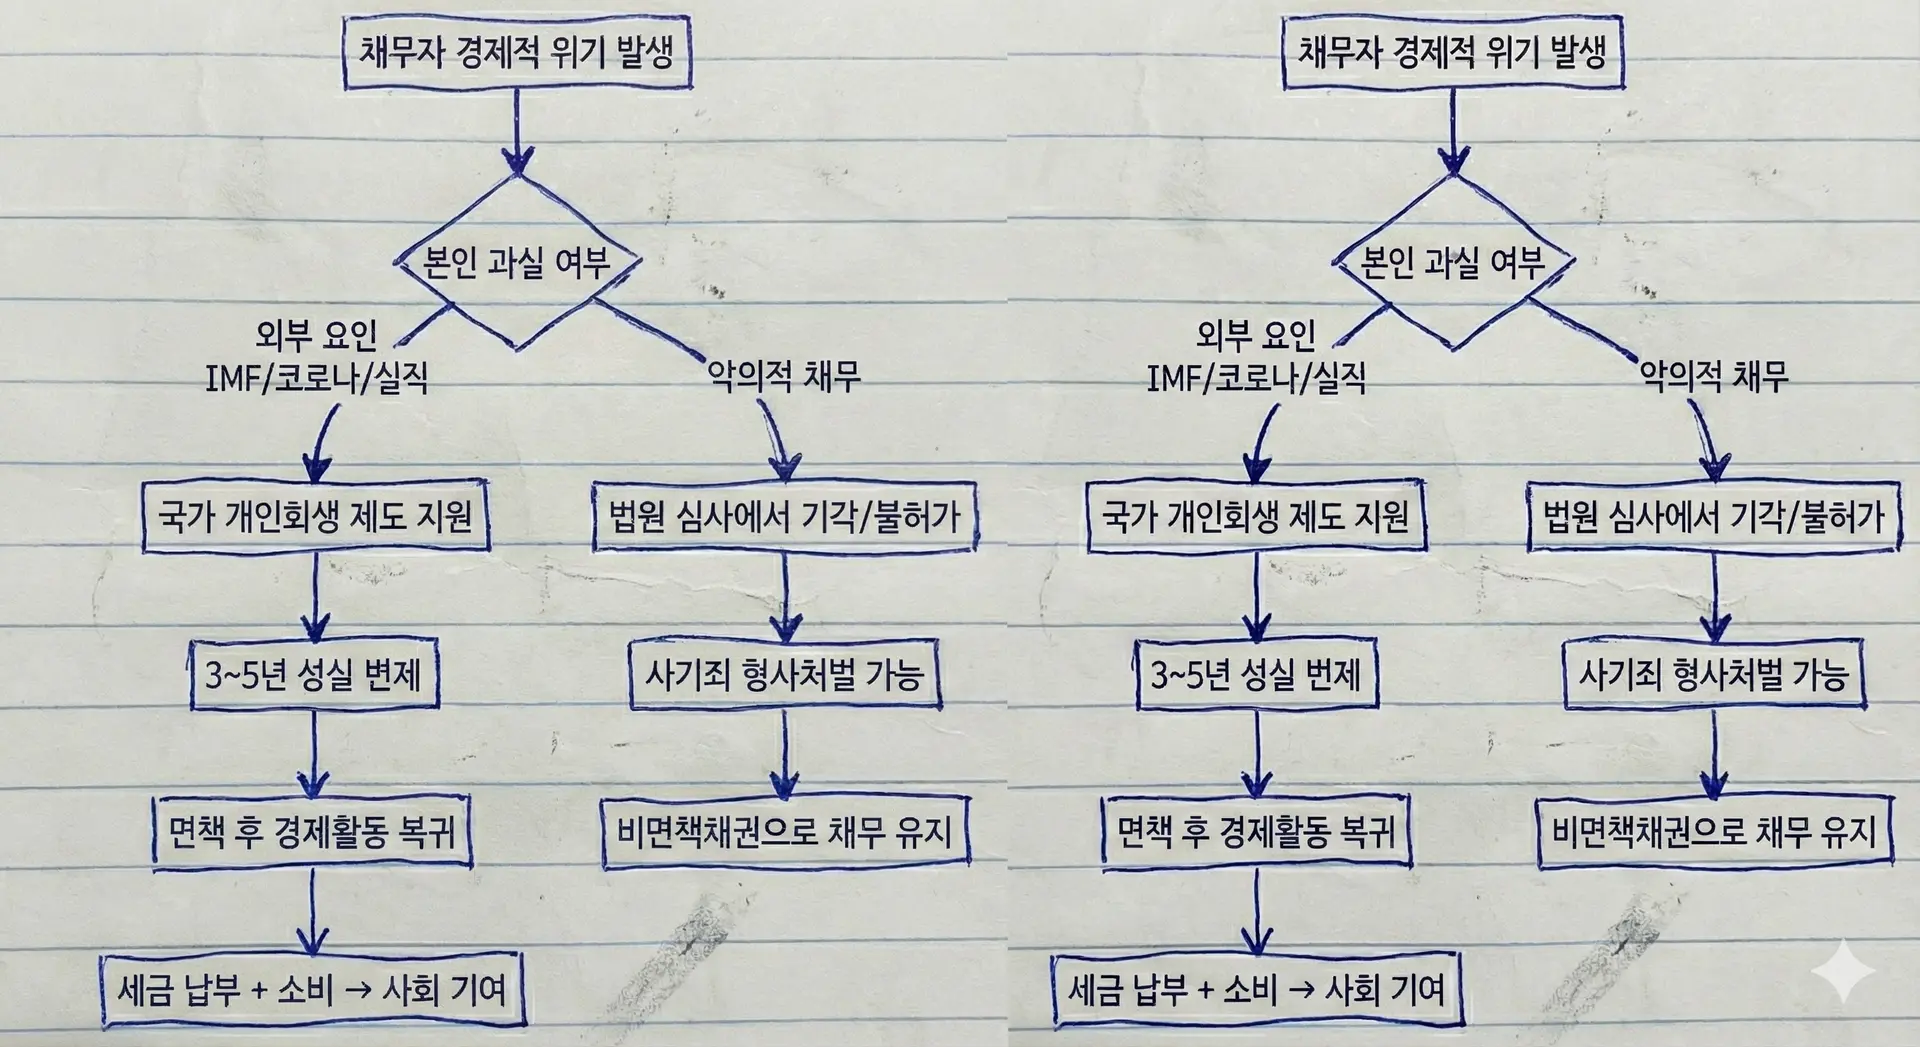 채무자 경제적 위기 발생
본인 과실 여부
외부 요인
IMF/코로나/실직
악의적 채무
국가 개인회생 제도 지원
법원 심사에서 기각/불허가
3~5년 성실 변제
사기죄 형사처벌 가능
면책 후 경제활동 복귀
비면책채권으로 채무 유지
세금 납부 + 소비 → 사회 기여
채무자 경제적 위기 발생
본인 과실 여부
외부 요인
IMF/코로나/실직
악의적 채무
국가 개인회생 제도 지원
법원 심사에서 기각/불허가
3~5년 성실 번제
사기죄 형사처벌 가능
면책 후 경제활동 복귀
비면책채권으로 채무 유지
세금 납부 + 소비 → 사회 기여